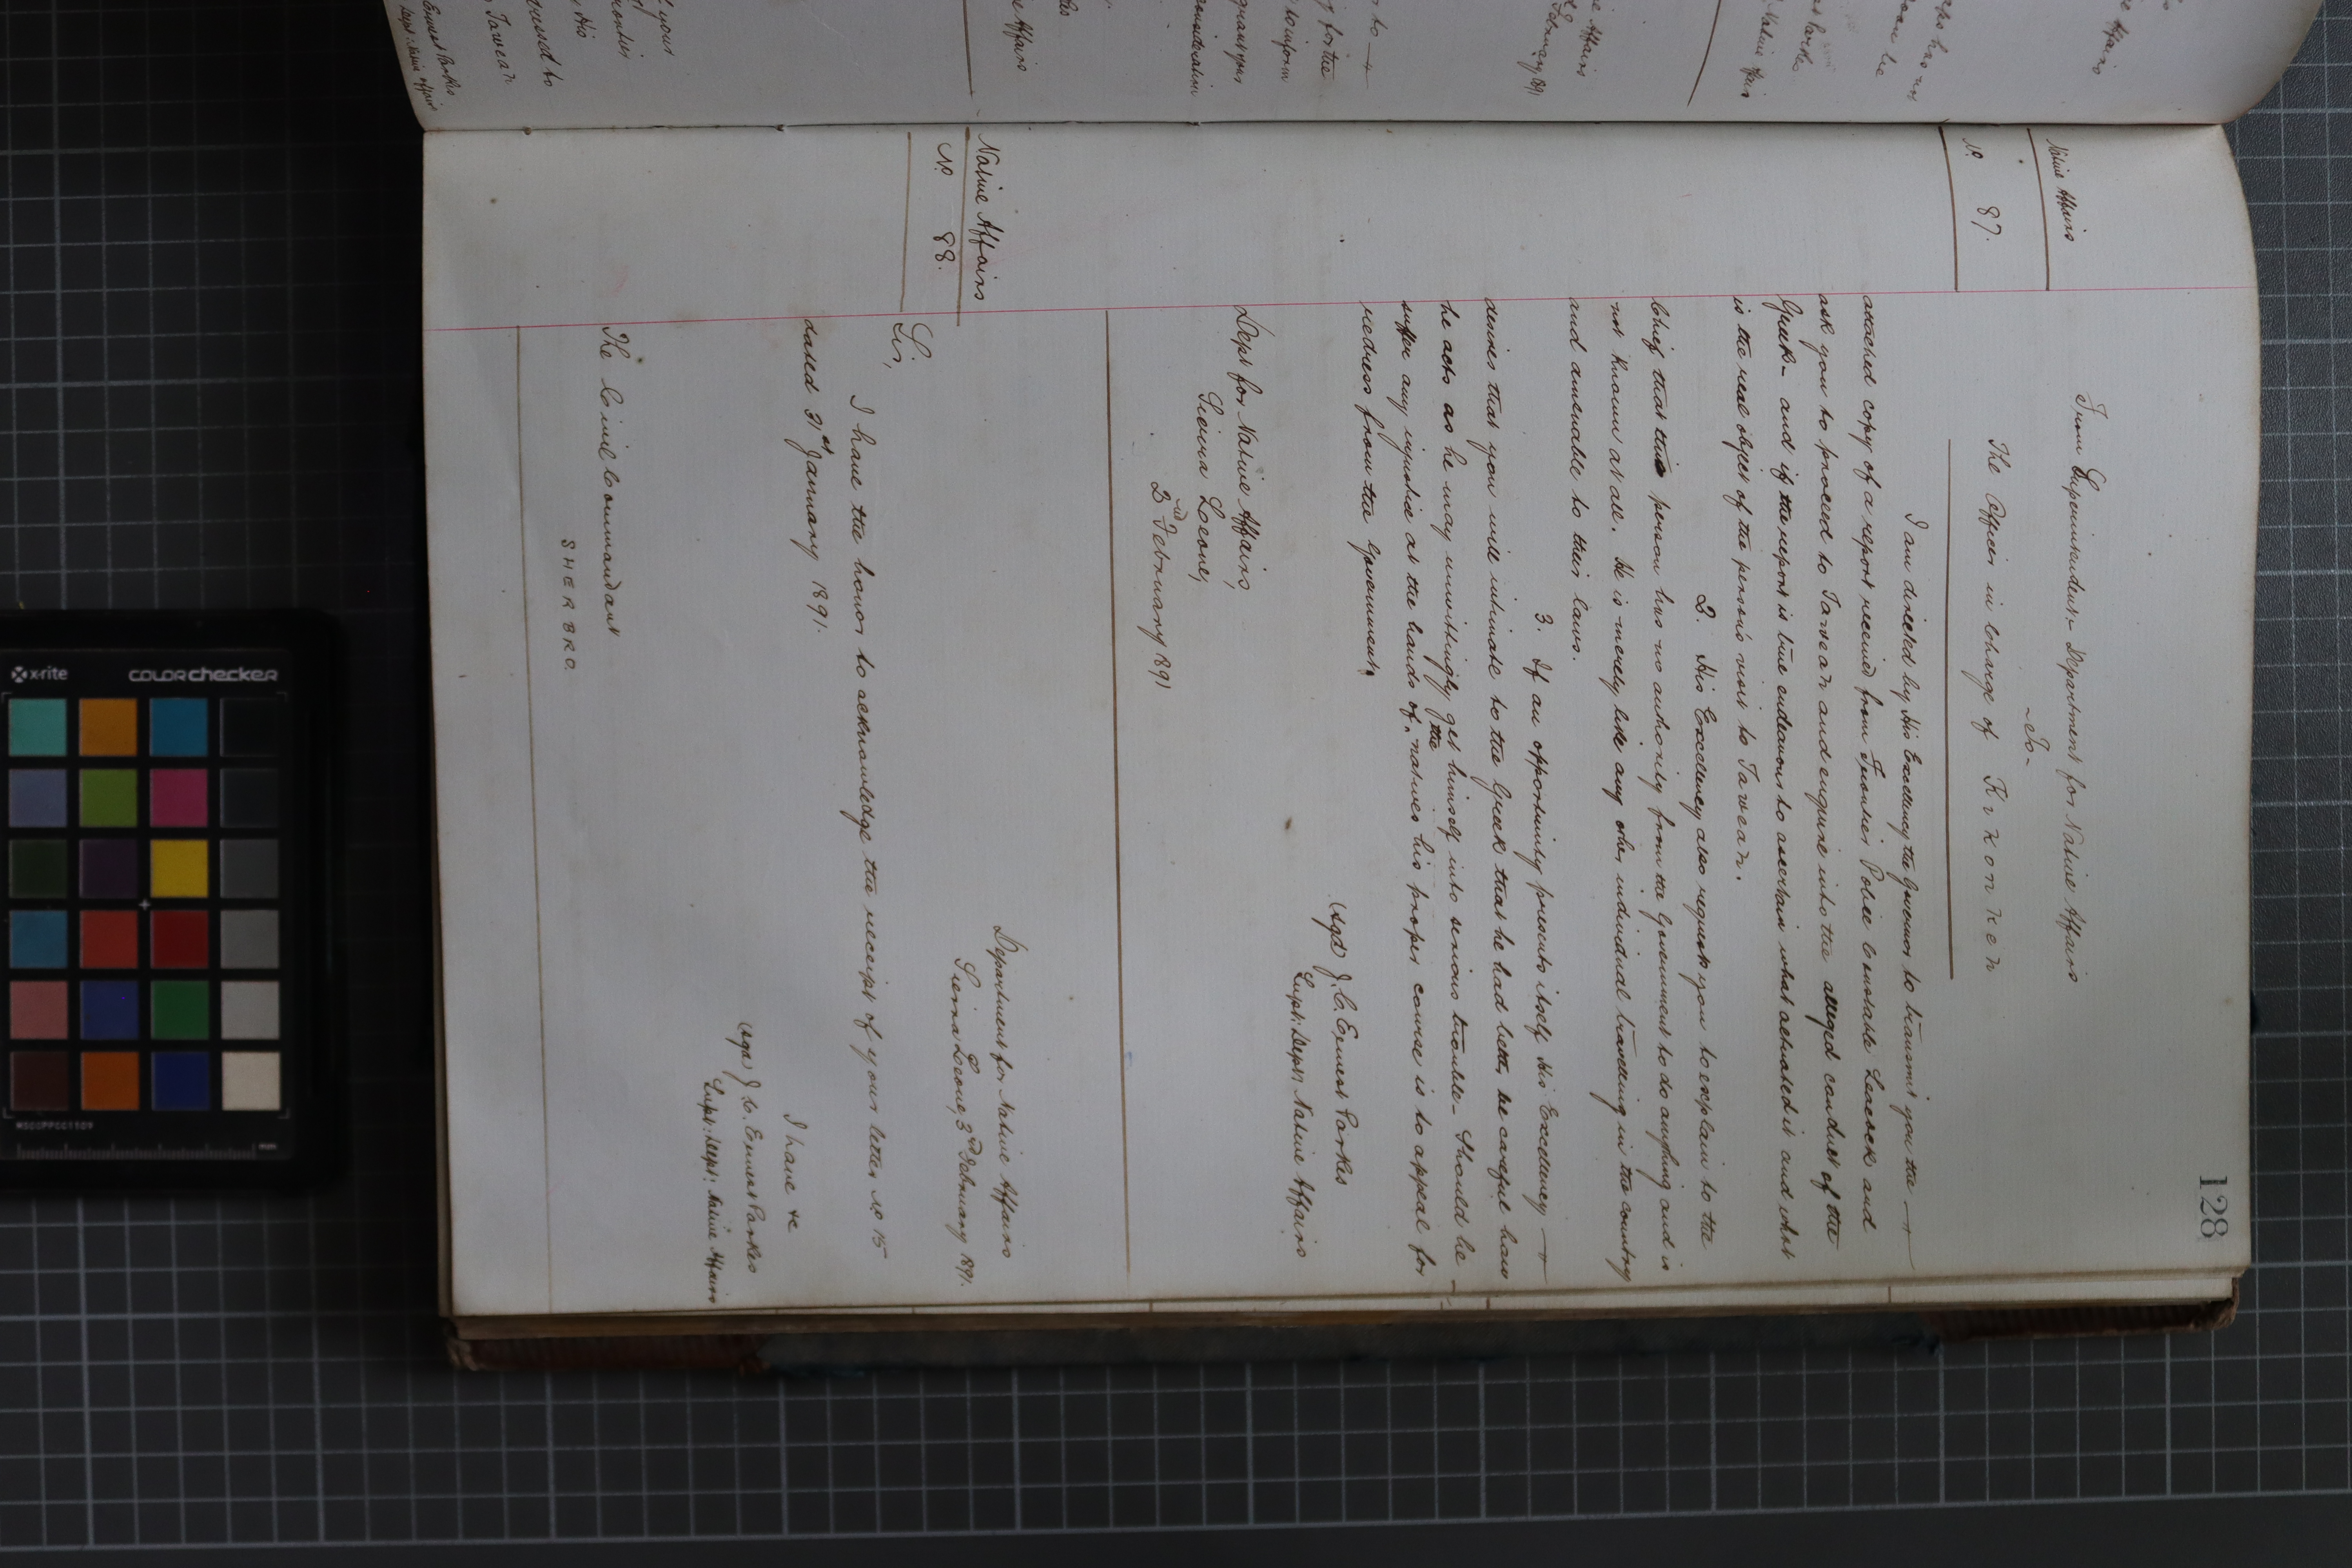 128
Native Affairs
No. 87.
From Superintendent Department for Native Affairs
- To -
The Officer in Charge of Kikonkeh
I am directed by His Excellency the Governor to transmit you the
attached copy of a report received from Frontier Police Constable Leacock and
ask you to proceed to Taweah and enquire into the alleged conduct of the
Greek - and if the report is true endeavour to ascertain what actuated it and what
is the real object of the person's visit to Taweah.
2. His Excellency also requests you to explain to the
Chief that this person has no authority from the Government to do anything and is
not known at all. He is merely like any other individual travelling in the country
and amenable to their laws.
3. If an opportunity presents itself His Excellency
desires that you will intimate to the Greek that he had better be careful how
he acts as he may unwittingly get himself into serious trouble - Should he
suffer any injustice at the hands of the natives his proper course is to appeal for
redress from the Government.
(sgd) J. C. Ernest Parkes
Supt: Dept: Native Affairs
Dept for Native Affairs,
Sierra Leone,
2nd February 1891
Native Affairs
No. 88.
Department for Native Affairs
Sierra Leone, 3rd February 1891.
Sir,
I have the honor to acknowledge the receipt of your letter No 15
dated 31st January 1891.
I have &c
(sgd) J. C. Ernest Parkes
Supt: Dept: Native Affairs
The Civil Commandant
SHERBRO.
x-rite
colorchecker
MSCCPPCC1109
mm